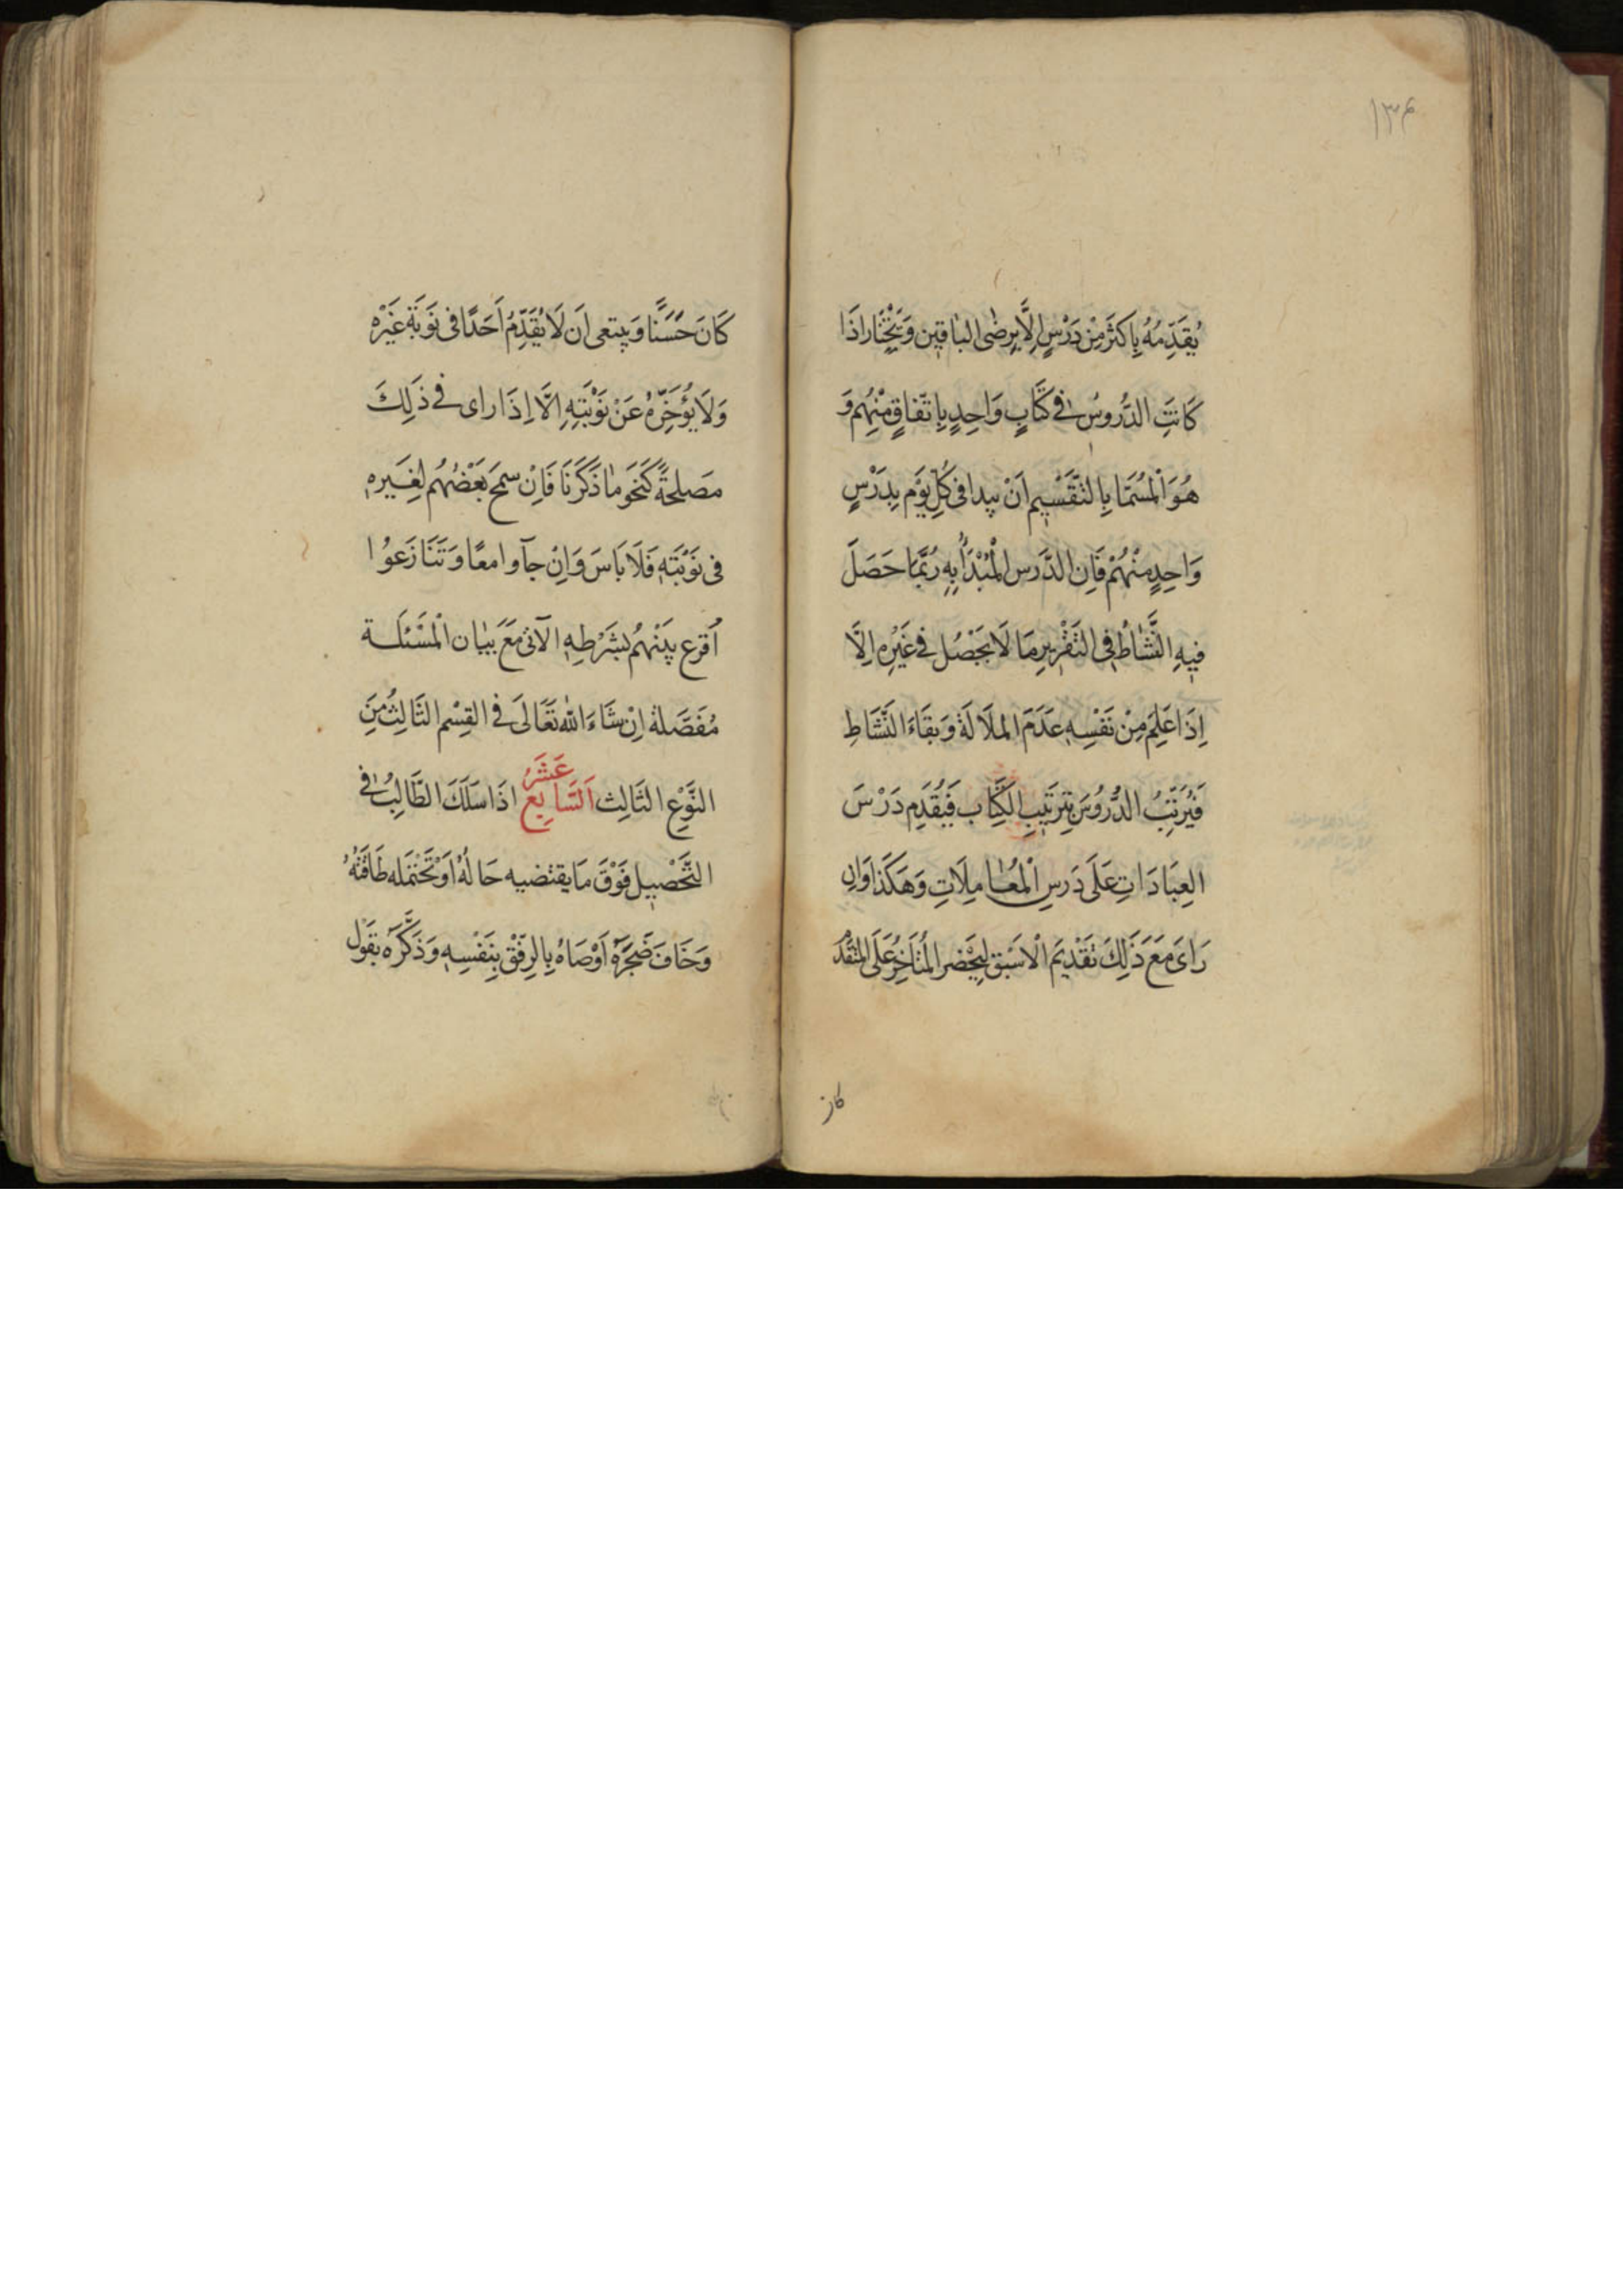 ۱۳۴
يُقَدِّمُهُ بِاكثَرَ مِنْ دَرْسٍ اِلَّا بِرِضٰى البٰاقٖين وَيَخْتٰارا ذَا
كَانتِ الدُّروسُ فٖى كتَابٍ وَاحِدٍ بِاتَفاقٍ مِنْهُم وَ
هُوَ الْمُسَمّا بِالتَّقَسْيٖم اَنْ يبدا فى كُلِّ يَوْم بِدَرْسٍ
وَاحِدٍ مِنْهُمْ فَاِن الدَّرس الْمُبْدَأُ بِهٖ رُبَّمَا حَصَلَ
فيٖهِ النَّشٰاطُ فِى التَقْرٖيرِ مَا لَا يَحْصُل فے غَيْرِهٖ اِلَّا
اِذَا عَلِمَ مِنْ نَفْسِهٖ عَدَمَ الملَالَةَ وَ بقَاءَ النَّشَاطِ
فَيُرَتِّبُ الدُّرُوُسَ بِتِرتَيبِ الكِتَٰاب فَيُقَدِم دَرْسَ
العِبَادَاتِ عَلَى دَرسِ الْمُعٰامِلَاتِ وَهَكَذَا وَان
رَاىَ مَعَ ذَلِكَ تَقْديمَ الْاسَبْق لِيَحْضر المُتَاَخِرُ عَلَى المتقْدَ
كان
كَانَ حَسَنًا وَيبتعى اَن لَا يُقَدِّمُ اَحَدًا فى نَوبَة غَيْرِه
وَلَا يُؤَخِّرهُ عَنْ نَوْبَتِهٖ اِلَّا اِذَا راى فے ذَلِكَ
مصَلحةً كَنَحَو مٰا ذَكَرنَا فَاِنْ سمَح بَعْضُهُم لِغَيرهٖ
فى نَوْبَتهٖ فَلَا بَاسَ وَاِنْ جآوا معًا وَ تَنَازَعوُا
اُقرع بيَنْهُم بشَرْطِهٖ الآتى مَعَ بيَان الْمَسْئلَة
مُفَصَّلةً اِنْ شَاءَ اللّٰه تَعَالىَ فے القِسْم الثَالِثُ مِنَ
النَّوِع الثَالِث اَلسَّابِع عَشَرُ اذَا سَلَكَ الطَّالِبُ فٖى
التَّحَصْيٖل فَوْقَ مَا يقتضيه حَالهُ اَوْ تَحْتمَله طَاقَتهُ
وَخَافَ ضَجَرَهُ اَوْصَاهُ بِالرِفْق بِنَفْسِهٖ وَ ذَكَّرَه بقَوْل